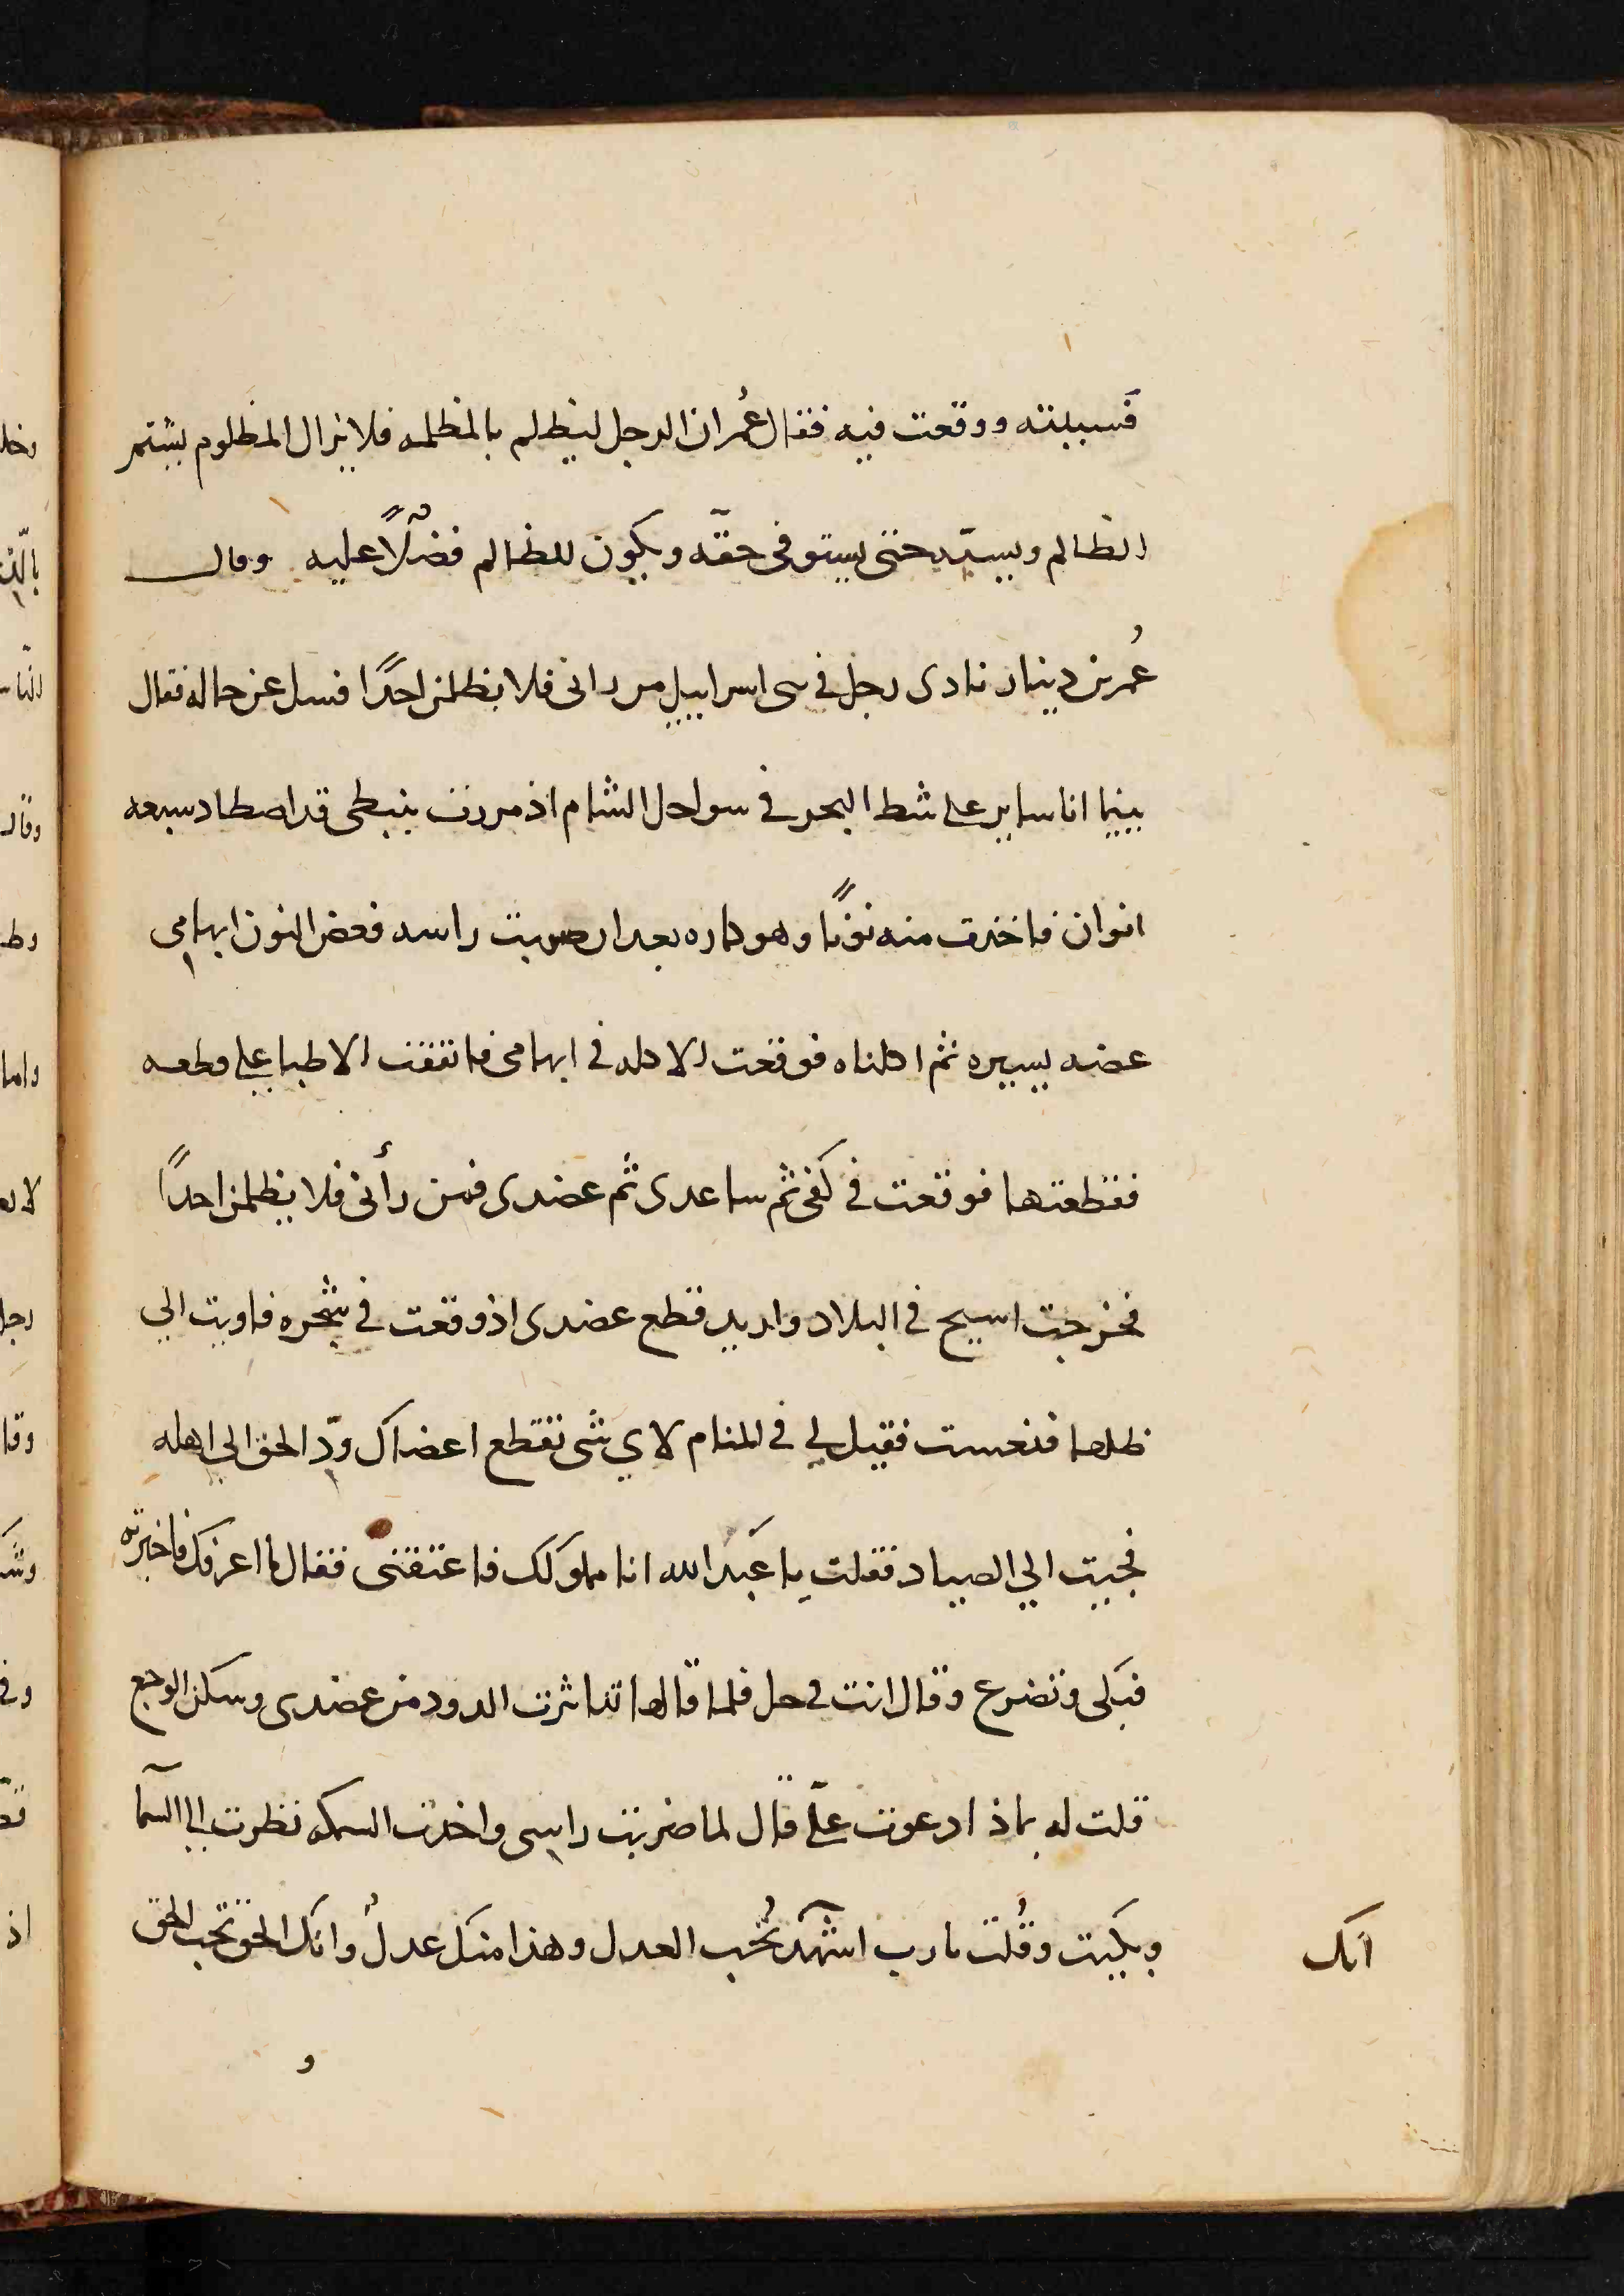 فسببته ووقعت فيه فقال عُمر ان الرجل ليظلم بالمظلمه فلا يزال المظلوم يشتم
الظالم ويسبّه حتى يستوفى حقّه ويكون للظالم فضلًا عليه وقال
عُمر بن دينار نادى رجل فى بنى اسراييل من رانى فلا يظلمن احدًا فسل عن حاله فقال
بينما انا ساير على شط البحر فى سواحل الشام اذ مررت بنبطى قد اصطاد سبعه
انوان فاخذت منه نونًا وهو كاره بعد ان ضربت راسه فعض النون ابهامى
عضه يسيره ثم اكلناه فوقعت الاكله فى ابهامى فاتفقت الاطبا على قطعه
فقطعتها فوقعت فى كفى ثم ساعدى ثم عضدى فمن رأنى فلا يظلمن احدًا
فخرجت اسيح فى البلاد واريد قطع عضدى اذ وقعت فى شجره فاويت الي
ظلها فنعست فقيل لي فى المنام لاي شى تقطع اعضاك ردّ الحق الي اهله
فجيت الي الصياد فقلت يا عَبد الله انا مملوكك فاعتقنى فقال ما اعرفك فاخبرته
فبكى وتضرع وقال انت فى حل فلما قالها تناثرت الدود من عضدى وسكن الوجع
قلت له بماذا دعوت علىّ قال لما ضربت راسى واخذت السمكه نظرت الي السمآ
وبكيت وقُلت يارب اشهد تُحب العدل وهذا منك عدلُ وانك الحق تحب الحق
انك
و